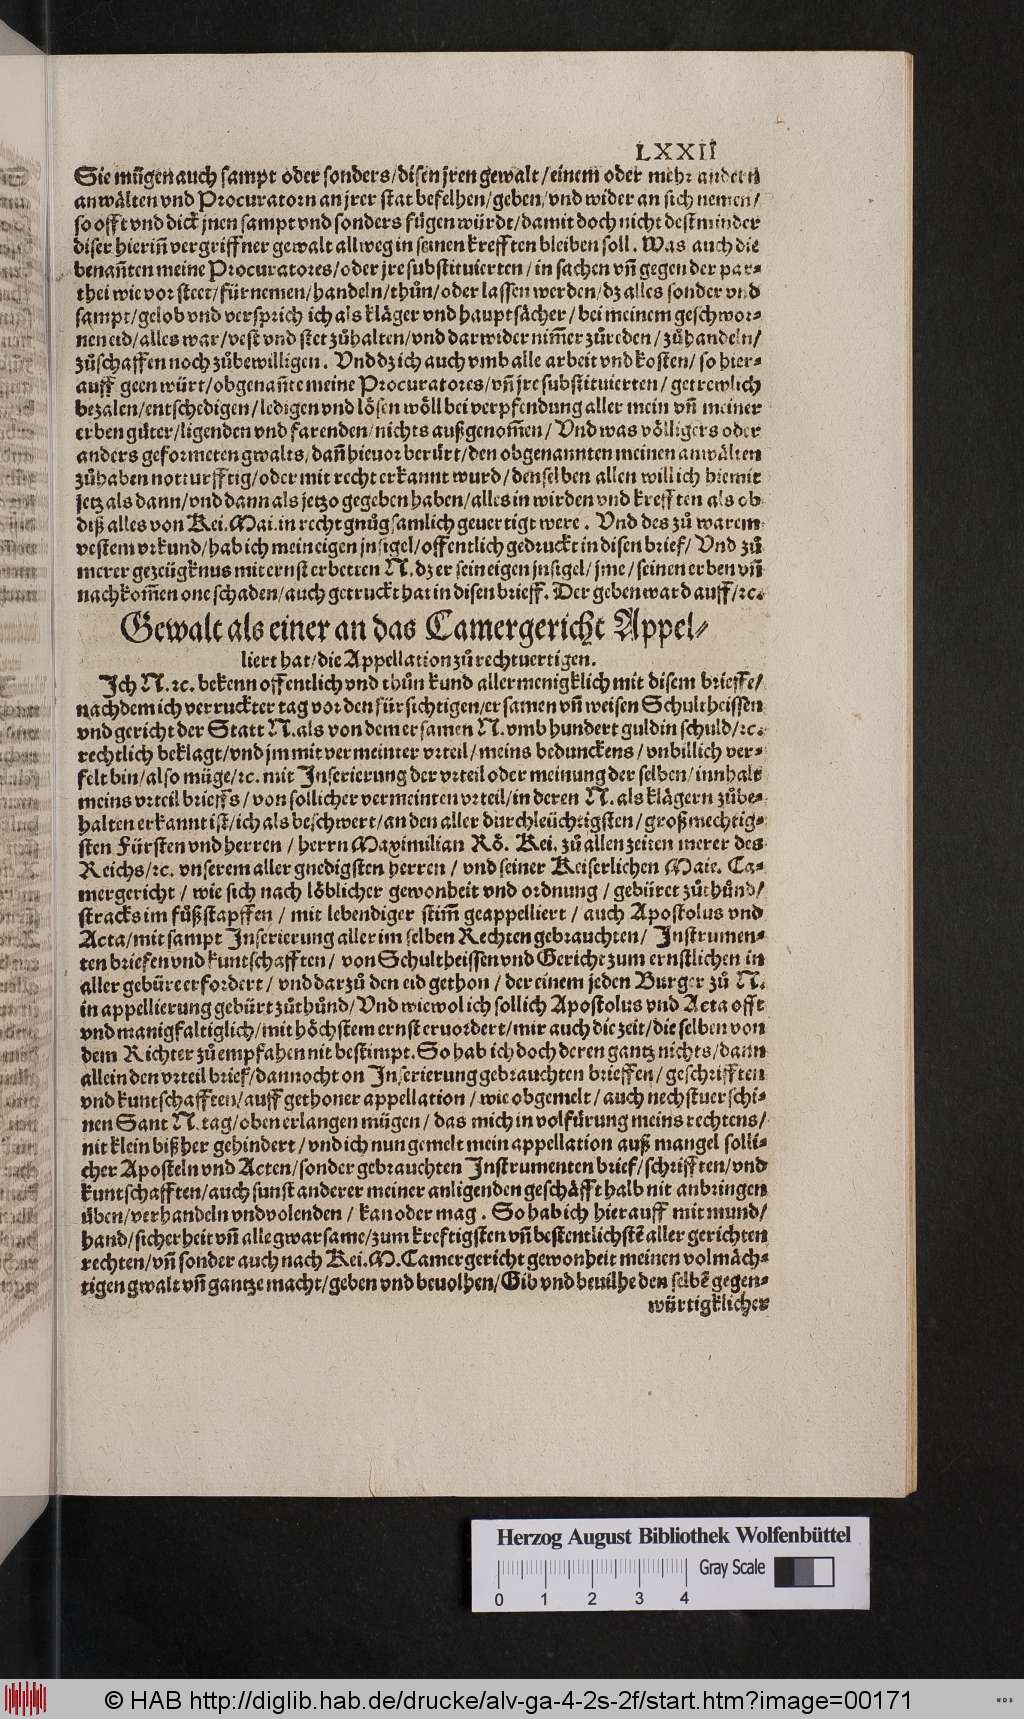 LXXII
Sie mügen auch sampt oder sonders/disen jren gewalt/einem oder mehr andern
anwälten vnd Procuratorn an jrer stat befelhen/geben/vnd wider an sich nemen/
so offt vnd dick jnen sampt vnd sonders fügen würdt/damit doch nicht destminder
diser hieriñ vergriffner gewalt allweg in seinen krefften bleiben soll. Was auch die
benañten meine Procuratores/oder jre substituierten/in sachen vñ gegen der par-
thei wie vor steet/fürnemen/handeln/thůn/oder lassen werden/dz alles sonder vnd
sampt/gelob vnd versprich ich als kläger vnd hauptsächer/bei meinem geschwor-
nen eid/alles war/vest vnd stet zůhalten/vnd darwider nim̃er zůreden/zůhandeln/
zůschaffen noch zůbewilligen. Vnd dz ich auch vmb alle arbeit vnd kosten/so hier-
auff geen würt/obgenañte meine Procuratores/vñ jre substituierten/getrewlich
bezalen/entschedigen/ledigen vnd lösen wöll bei verpfendung aller mein vñ meiner
erben güter/ligenden vnd farenden/nichts außgenom̃en/Vnd was völligers oder
anders geformeten gwalts/dañ hieuor berürt/den obgenannten meinen anwälten
zůhaben notturfftig/oder mit recht erkannt wurd/denselben allen will ich hiemit
jetz als dann/vnd dann als jetzo gegeben haben/alles in wirden vnd krefften als ob
diß alles von Kei. Mai. in recht gnůgsamlich geuertigt were. Vnd des zů warem
vestem vrkund/hab ich mein eigen jnsigel/offentlich gedruckt in disen brief/Vnd zů
merer gezeügknus mit ernst erbetten N. dz er sein eigen jnsigel/jme/seinen erben vñ
nachkom̃en one schaden/auch getruckt hat in disen brieff. Der geben ward auff/ꝛc.
Gewalt als einer an das Camergericht Appel-
liert hat/die Appellation zůrechtuertigen.
Ich N. ꝛc. bekenn offentlich vnd thůn kund allermenigklich mit disem brieffe/
nachdem ich verruckter tag vor den fürsichtigen/ersamen vñ weisen Schultheissen
vnd gericht der Statt N. als von dem ersamen N. vmb hundert guldin schuld/ꝛc.
rechtlich beklagt/vnd jm mit vermeinter vrteil/meins bedunckens/vnbillich ver-
felt bin/also müge/ꝛc. mit Inserierung der vrteil oder meinung der selben/innhalt
meins vrteil brieffs/von sollicher vermeinten vrteil/in deren N. als klägern zůbe-
halten erkannt ist/ich als beschwert/an den aller durchleüchtigsten/großmechtig-
sten Fürsten vnd herren/herrn Maximilian Rö. Kei. zů allen zeiten merer des
Reichs/ꝛc. vnserem aller gnedigsten herren/vnd seiner Keiserlichen Maie. Ca-
mergericht/wie sich nach löblicher gewonheit vnd ordnung/gebüret zůthůnd/
stracks im fůßstapffen/mit lebendiger stim̃ geappelliert/auch Apostolus vnd
Acta/mit sampt Inserierung aller im selben Rechten gebrauchten/Instrumen-
ten briefen vnd kuntschafften/von Schultheissen vnd Gericht zum ernstlichen in
aller gebüre erfordert/vnd darzů den eid gethon/der einem jeden Burger zů N.
in appellierung gebürt zůthůnd/Vnd wiewol ich sollich Apostolus vnd Acta offt
vnd manigfaltiglich/mit höchstem ernst eruordert/mir auch die zeit/die selben von
dem Richter zů empfahen nit bestimpt. So hab ich doch deren gantz nichts/dann
allein den vrteil brief/dannocht on Inserierung gebrauchten brieffen/geschrifften
vnd kuntschafften/auff gethoner appellation/wie obgemelt/auch nechstuerschi-
nen Sant N. tag/oben erlangen mügen/das mich in volfürung meins rechtens/
nit klein bißher gehindert/vnd ich nun gemelt mein appellation auß mangel solli-
cher Aposteln vnd Acten/sonder gebrauchten Instrumenten brief/schrifften/vnd
kuntschafften/auch sunst anderer meiner anligenden geschäfft halb nit anbringen
üben/verhandeln vnd volenden/kan oder mag. So hab ich hierauff mit mund/
hand/sicherheit vñ alle gwarsame/zum kreftigsten vñ bestentlichstẽ aller gerichten
rechten/vñ sonder auch nach Kei. M. Camergericht gewonheit meinen volmäch-
tigen gwalt vñ gantze macht/geben vnd beuolhen/Gib vnd beuilhe den selbẽ gegen-
würtigklicher
Herzog August Bibliothek Wolfenbüttel
Gray Scale
0 1 2 3 4
© HAB http://diglib.hab.de/drucke/alv-ga-4-2s-2f/start.htm?image=00171